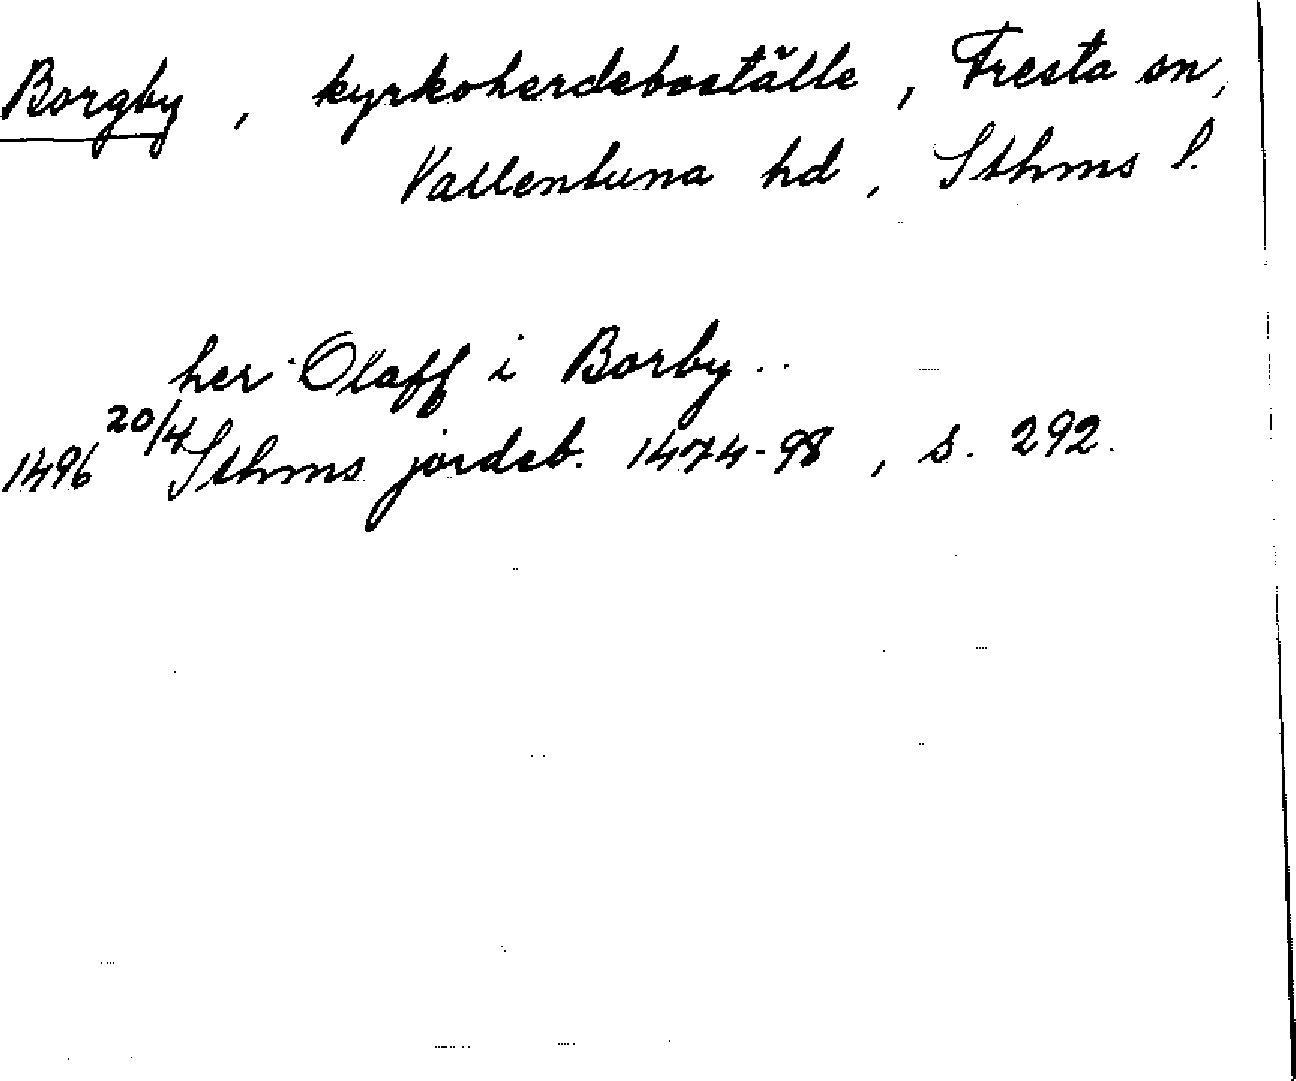 Borgby, kyrkoherdeboställe, Fresta sn,
Vallentuna hd, Sthms l.
her Olaff i Borby..
1496 20/4 Sthms jordeb. 1474-98, s. 292.